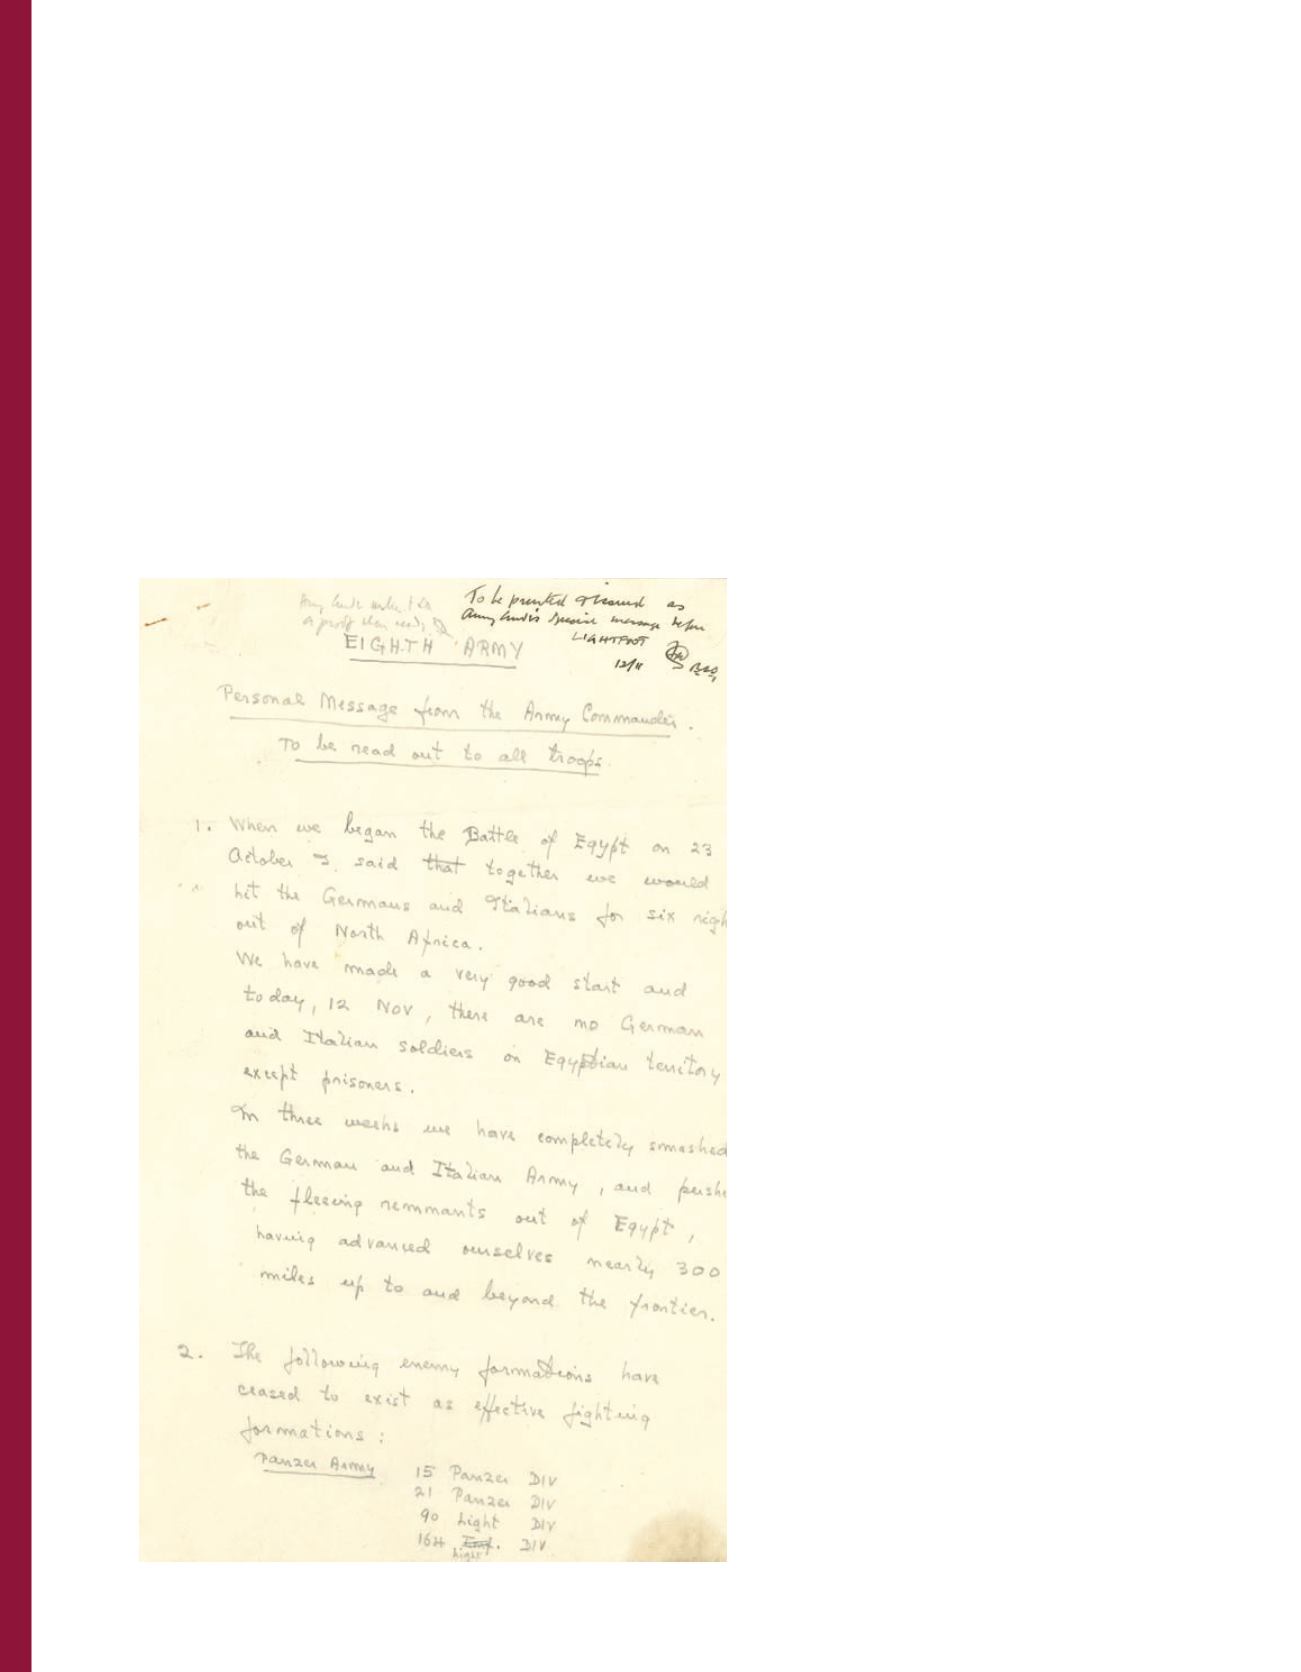 To be printed & issued as
Army Comd's special message before
LIGHTFOOT
12/11
EIGHTH ARMY
Personal Message from the Army Commander.
To be read out to all troops.
1. When we began the Battle of Egypt on 23
October I said that together we would
hit the Germans and Italians for six righ
out of North Africa.
We have made a very good start and
today, 12 Nov, there are no German
and Italian soldiers on Egyptian territory
except prisoners.
In three weeks we have completely smashed
the German and Italian Army, and pushe
the fleeing remnants out of Egypt,
having advanced ourselves nearly 300
miles up to and beyond the frontier.
2. The following enemy formations have
ceased to exist as effective fighting
formations:
Panzer Army 15 Panzer DIV
21 Panzer DIV
90 Light DIV
164 Inf. DIV
Light